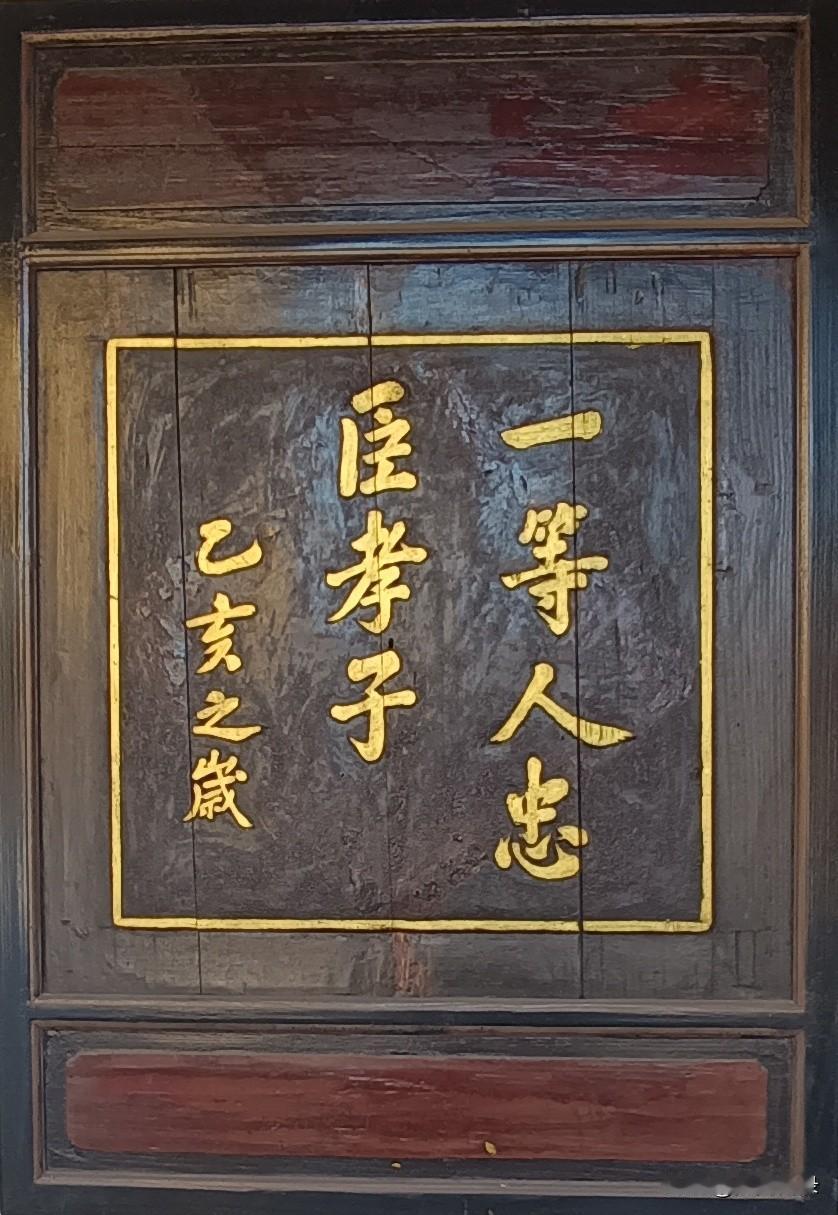 一等人忠
臣孝子
乙亥之歲